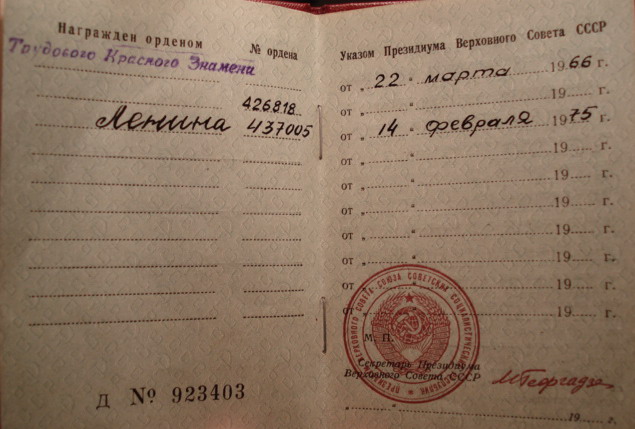 Награжден орденом
№ ордена
Трудового Красного Знамени
426818
Ленина 437005
Д № 923403
Указом Президиума Верховного Совета СССР
от „ 22 “ марта 1966 г.
от „ “ 19 г.
от „ 14 “ февраля 1975 г.
от „ 19 г.
от „ 19 г.
от „ 19 г.
от „ 19 г.
от „ 19 г.
от „ 19 г.
от „ 19 г.
М. П.
Секретарь Президиума
Верховного Совета СССР
19 г.